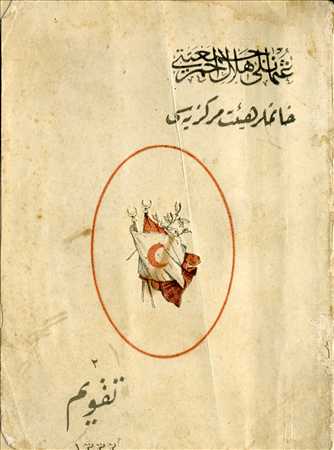 عثمانلى هلال احمر جمعيتى
خانملر هيئت مركزيه سى
٢
تقويم